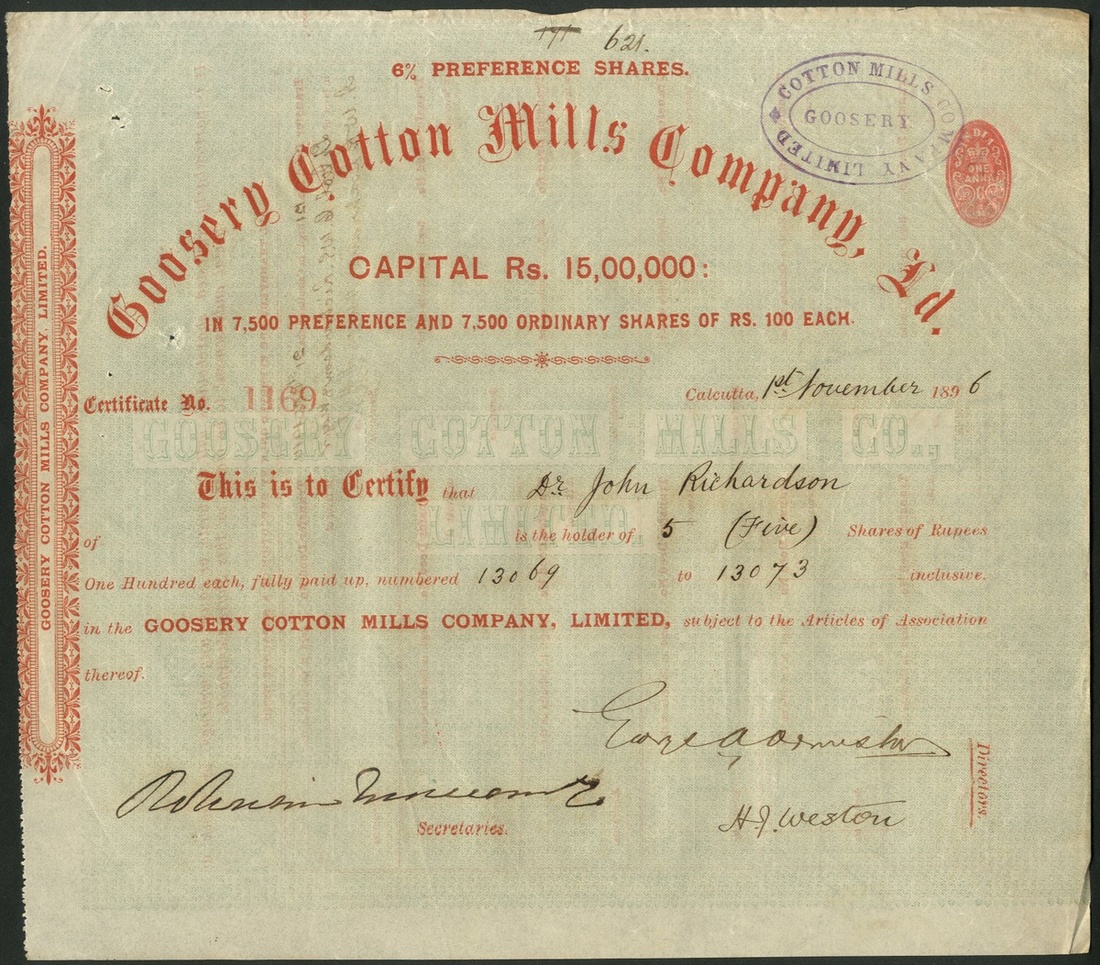 621.
6% PREFERENCE SHARES.
COTTON MILLS COMPANY LIMITED
GOOSERY
INDIA
ONE
ANNA
Goosery Cotton Mills Company, Ld.
CAPITAL Rs. 15,00,000:
IN 7,500 PREFERENCE AND 7,500 ORDINARY SHARES OF RS. 100 EACH.
GOOSERY COTTON MILLS COMPANY, LIMITED.
Calcutta, 1st November 1896
Certificate No. 1169
GOOSERY COTTON MILLS CO.,
LIMITED.
This is to Certify that Dr. John Richardson
of is the holder of 5 (Five) Shares of Rupees
One Hundred each, fully paid up, numbered 13069 to 13073 inclusive.
in the GOOSERY COTTON MILLS COMPANY, LIMITED, subject to the Articles of Association
thereof.
Directors.
H.J. Weston
Secretaries.